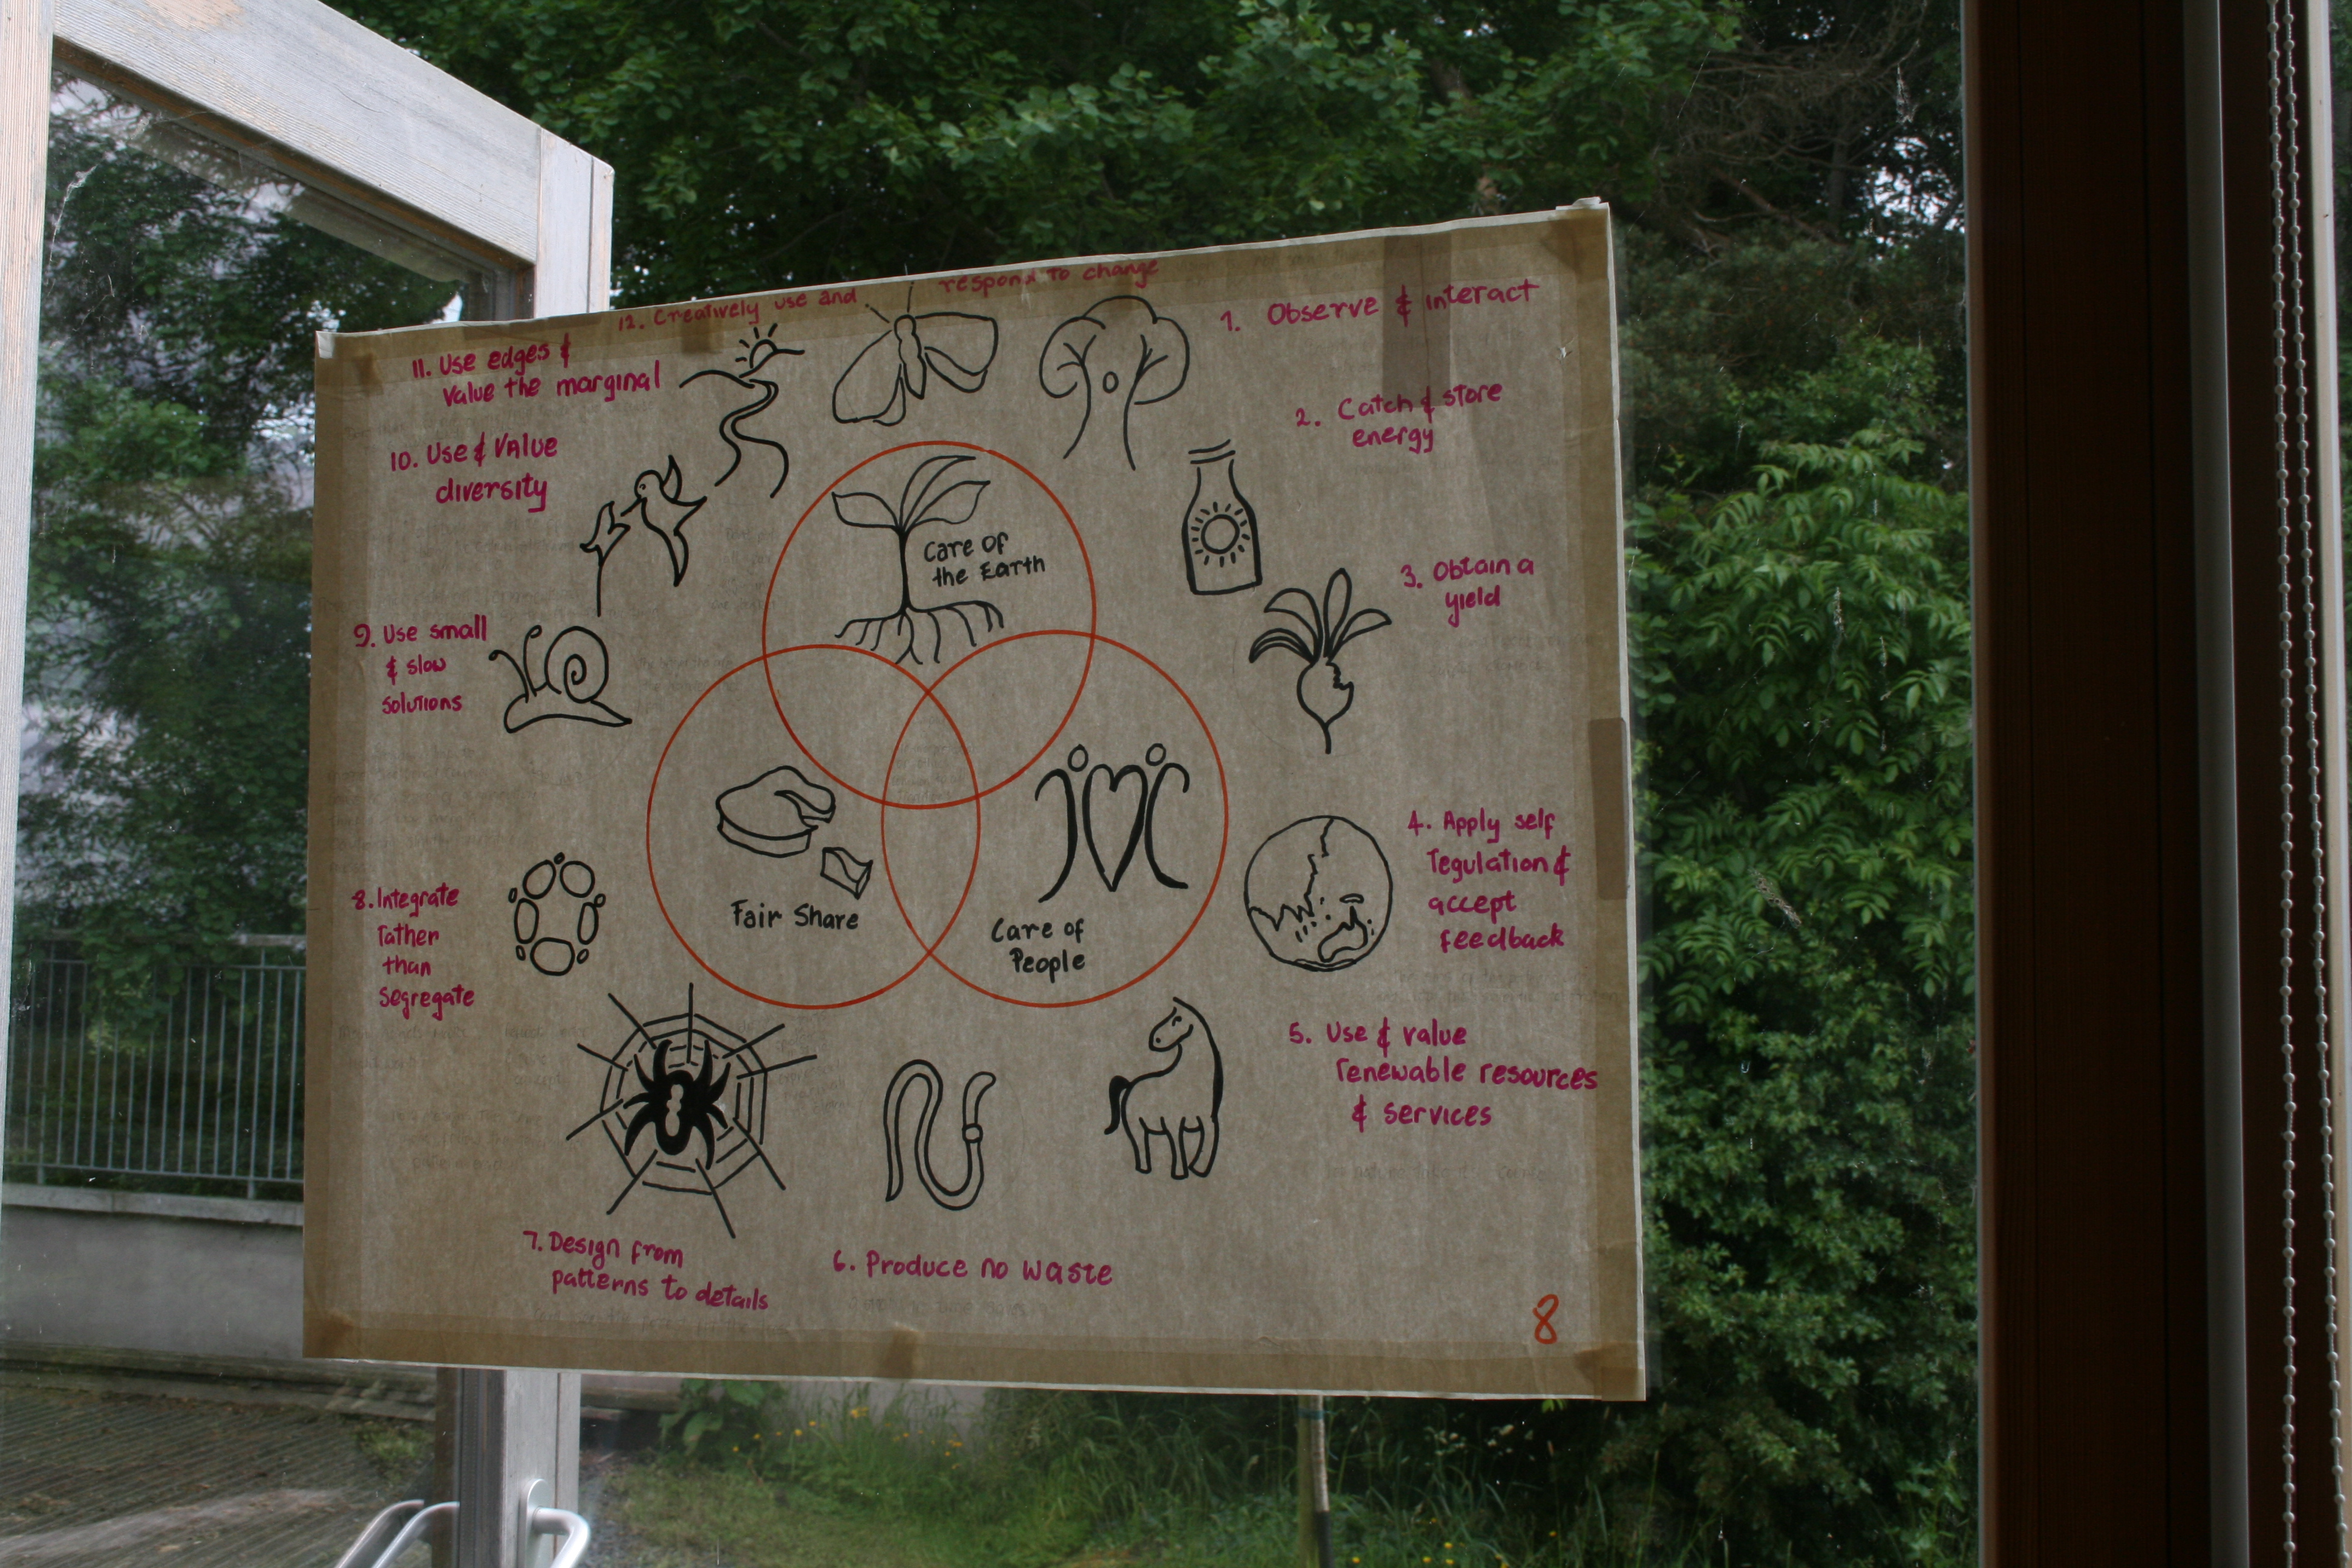 12. Creatively use and respond to change
1. Observe & interact
2. Catch & store
energy
3. Obtain a
yield
4. Apply self
regulation &
accept
feedback
5. Use & value
renewable resources
& services
6. Produce no waste
7. Design from
patterns to details
8. Integrate
rather
than
segregate
9. Use small
& slow
solutions
10. Use & value
diversity
11. Use edges &
value the marginal
Care of
the Earth
Fair Share
Care of
People
8